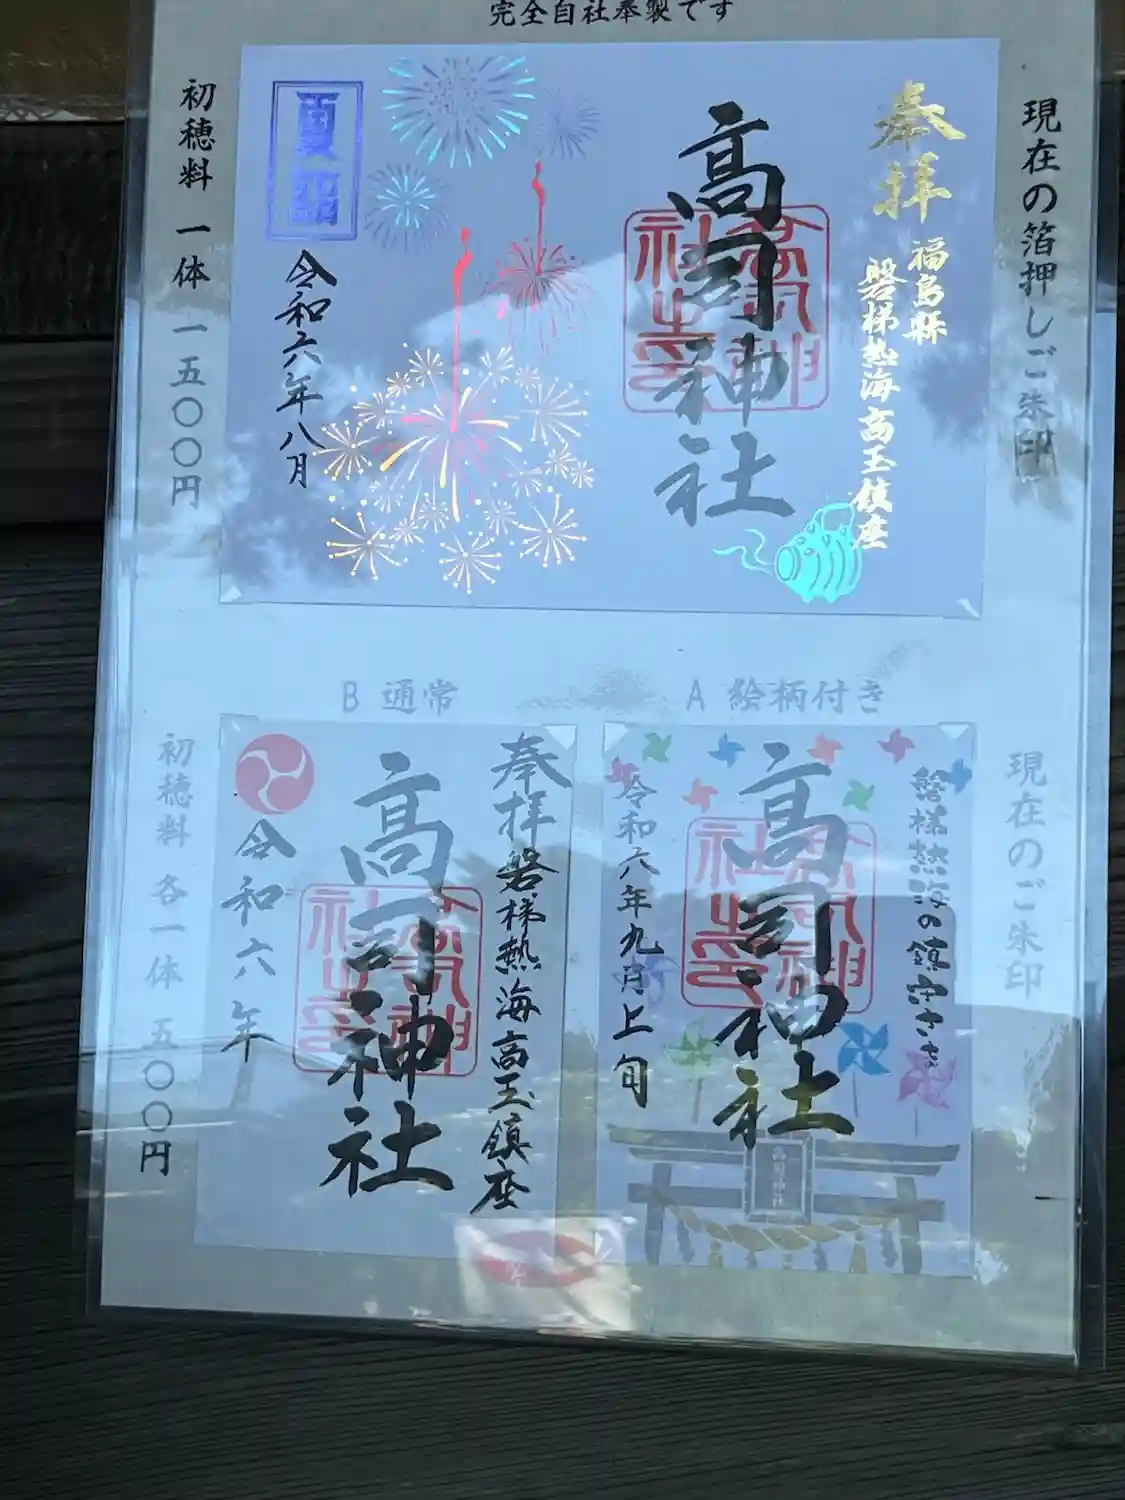 完全自社奉製です
現在の箔押しご朱印
奉拝
福島縣
磐梯熱海高玉鎮座
高司神社
令和六年八月
夏詣
初穂料 一体 一五〇〇円
A 絵柄付き
B 通常
現在のご朱印
磐梯熱海の鎮守さま
高司神社
令和六年九月上旬
高司神社
奉拝
磐梯熱海高玉鎮座
高司神社
令和六年
初穂料 各一体 五〇〇円